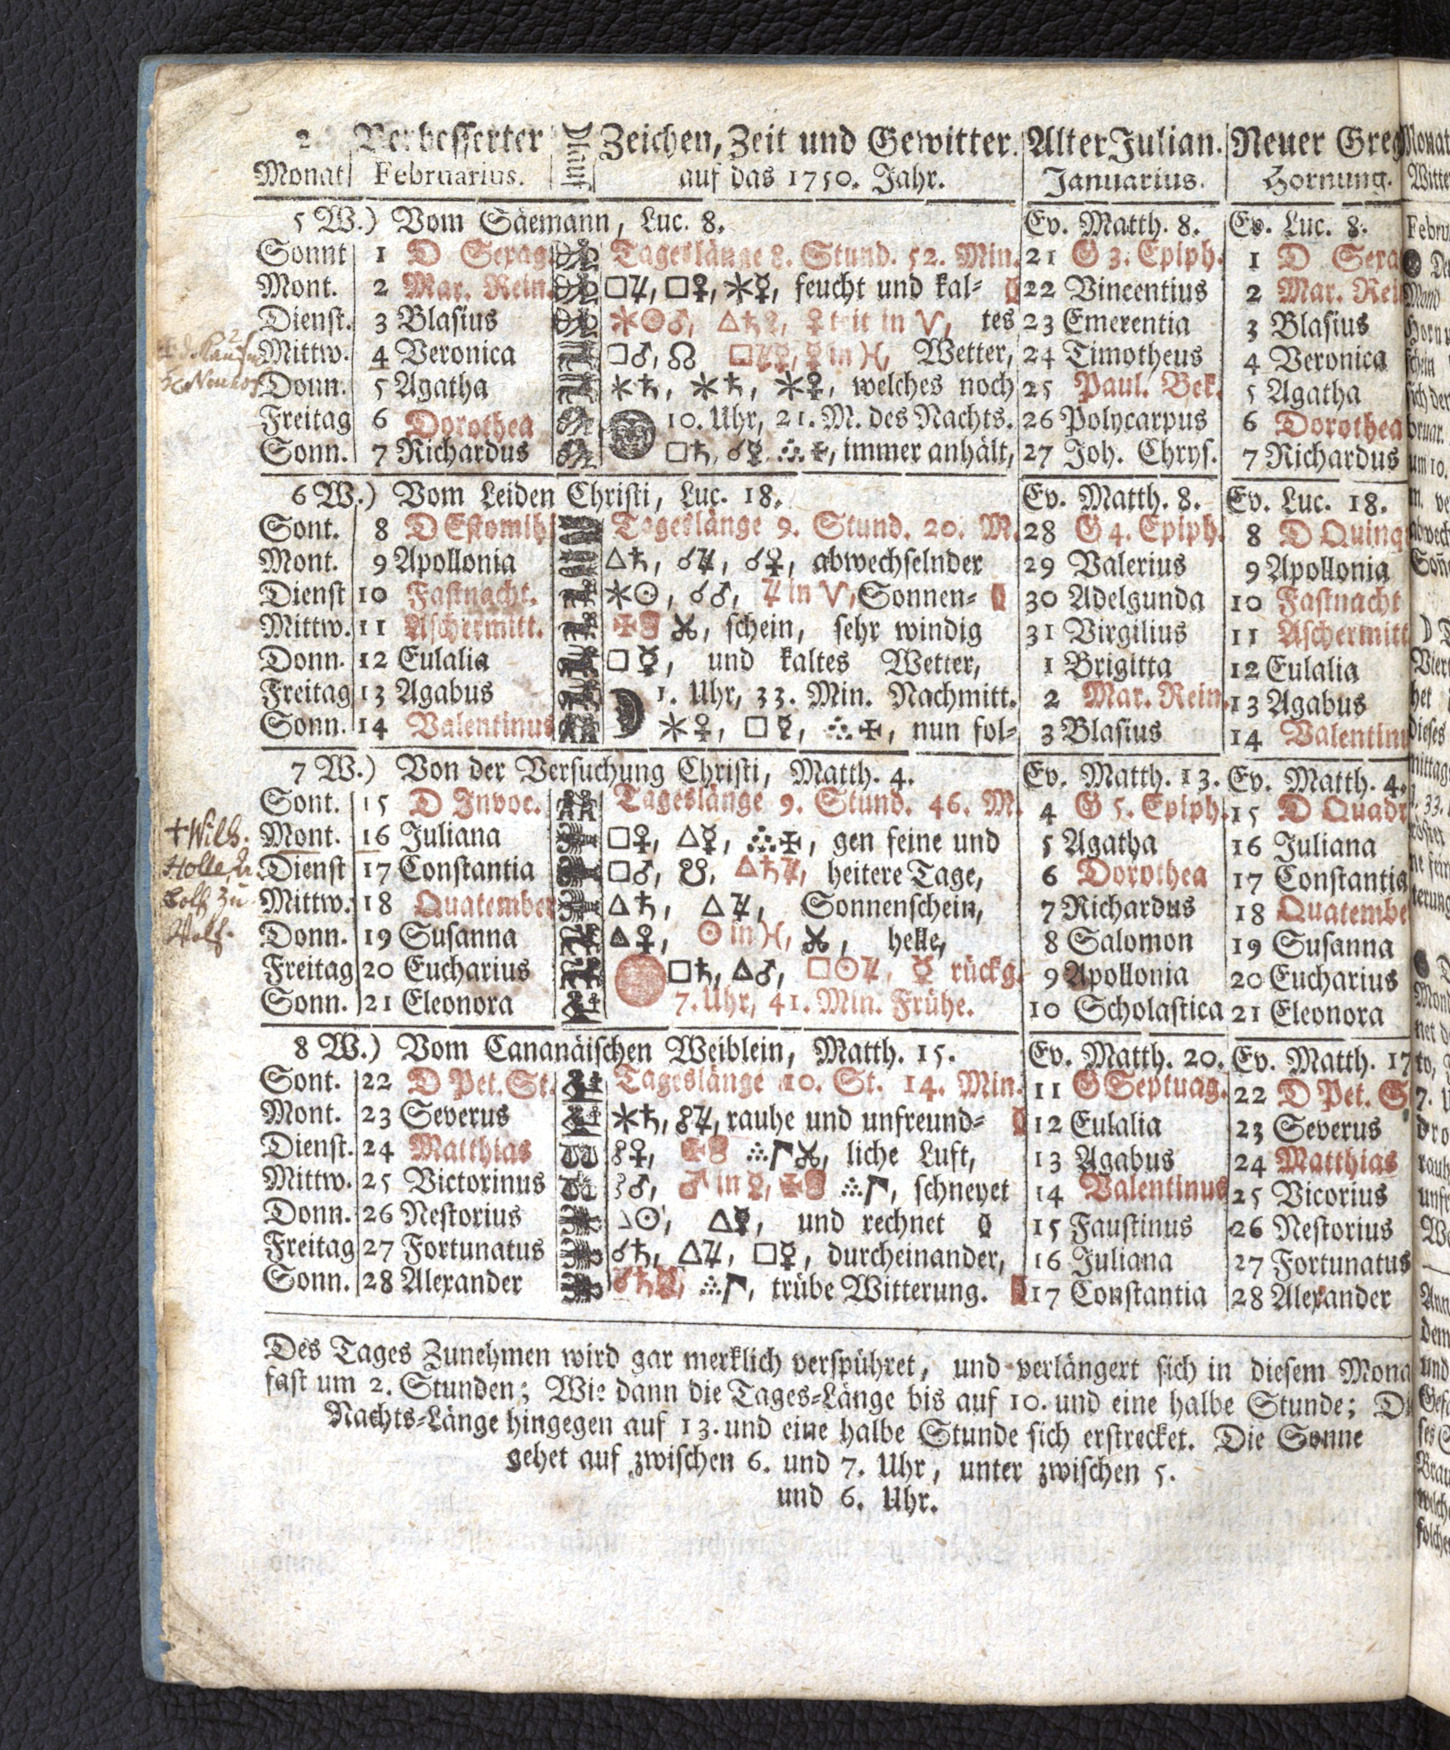 2. Verbesserter Zeichen, Zeit und Gewitter. Alter Julian. Neuer Greg
Monat Februarius. auf das 1750. Jahr. Januarius. Hornung.
5 W.) Vom Säemann, Luc. 8. Ev. Matth. 8. Ev. Luc. 8.
Sonnt 1 D Sexag. Tageslänge 8. Stund. 52. Min. 21 G 3. Epiph. 1 D Sexa
Mont. 2 Mar. Rein. □♃, □♀, ⚹☿, feucht und kal⸗ 22 Vincentius 2 Mar. Rei
Dienst. 3 Blasius ⚹☉♂, in ♈, tes 23 Emerentia 3 Blasius
Mittw. 4 Veronica □♂, ☊ in ♓, Wetter, 24 Timotheus 4 Veronica
Donn. 5 Agatha ⚹♄, ⚹♄, ⚹♀, welches noch 25 Paul. Bek. 5 Agatha
Freitag 6 Dorothea 10. Uhr, 21. M. des Nachts. 26 Polycarpus 6 Dorothea
Sonn. 7 Richardus □♄, ☌☿ immer anhält, 27 Joh. Chrys. 7 Richardus
6 W.) Vom Leiden Christi, Luc. 18. Ev. Matth. 8. Ev. Luc. 18.
Sont. 8 D Estomih Tageslänge 9. Stund. 20. M. 28 G 4. Epiph. 8 D Quinq
Mont. 9 Apollonia △♄, ☌♃, ☌♀, abwechselnder 29 Valerius 9 Apollonia
Dienst 10 Fastnacht. ⚹☉, ☌♂, ♃ in ♈, Sonnen⸗ 30 Adelgunda 10 Fastnacht
Mittw. 11 Aschermitt. schein, sehr windig 31 Virgilius 11 Aschermitt
Donn. 12 Eulalia □☿, und kaltes Wetter, 1 Brigitta 12 Eulalia
Freitag 13 Agabus 1. Uhr, 33. Min. Nachmitt. 2 Mar. Rein. 13 Agabus
Sonn. 14 Valentinus ⚹♀, □☿, nun fol⸗ 3 Blasius 14 Valentinu
7 W.) Von der Versuchung Christi, Matth. 4. Ev. Matth. 13. Ev. Matth. 4.
Sont. 15 D Invoc. Tageslänge 9. Stund. 46. M. 4 G 5. Epiph. 15 D Quadr
†Wilh. Mont. 16 Juliana □♀, △☿, gen feine und 5 Agatha 16 Juliana
Holle Dienst 17 Constantia □♂, ☋, △♄♃, heitere Tage, 6 Dorothea 17 Constantia
zu Mittw. 18 Quatember △♄, △♃, Sonnenschein, 7 Richardus 18 Quatembe
Donn. 19 Susanna △♀, ☉ in ♓, helle, 8 Salomon 19 Susanna
Freitag 20 Eucharius □♄, △♂, □☉♃, ☿ rückg. 9 Apollonia 20 Eucharius
Sonn. 21 Eleonora 7. Uhr, 41. Min. Frühe. 10 Scholastica 21 Eleonora
8 W.) Vom Cananäischen Weiblein, Matth. 15. Ev. Matth. 20. Ev. Matth. 17
Sont. 22 D Pet. St. Tageslänge 10. St. 14. Min. 11 G Septuag. 22 D Pet. S
Mont. 23 Severus ⚹♄, ☍♃, rauhe und unfreund⸗ 12 Eulalia 23 Severus
Dienst. 24 Matthias ☍♀, liche Luft, 13 Agabus 24 Matthias
Mittw. 25 Victorinus ☍♂, ♂ in schneyet 14 Valentinus 25 Vicorius
Donn. 26 Nestorius △☿, und rechnet 15 Faustinus 26 Nestorius
Freitag 27 Fortunatus ☌♄, △♃, □☿, durcheinander, 16 Juliana 27 Fortunatus
Sonn. 28 Alexander trübe Witterung. 17 Constantia 28 Alexander
Des Tages Zunehmen wird gar merklich verspühret, und verlängert sich in diesem Mona
fast um 2. Stunden; Wie dann die Tages⸗Länge bis auf 10. und eine halbe Stunde; Di
Nachts⸗Länge hingegen auf 13. und eine halbe Stunde sich erstrecket. Die Sonne
gehet auf zwischen 6. und 7. Uhr, unter zwischen 5.
und 6. Uhr.